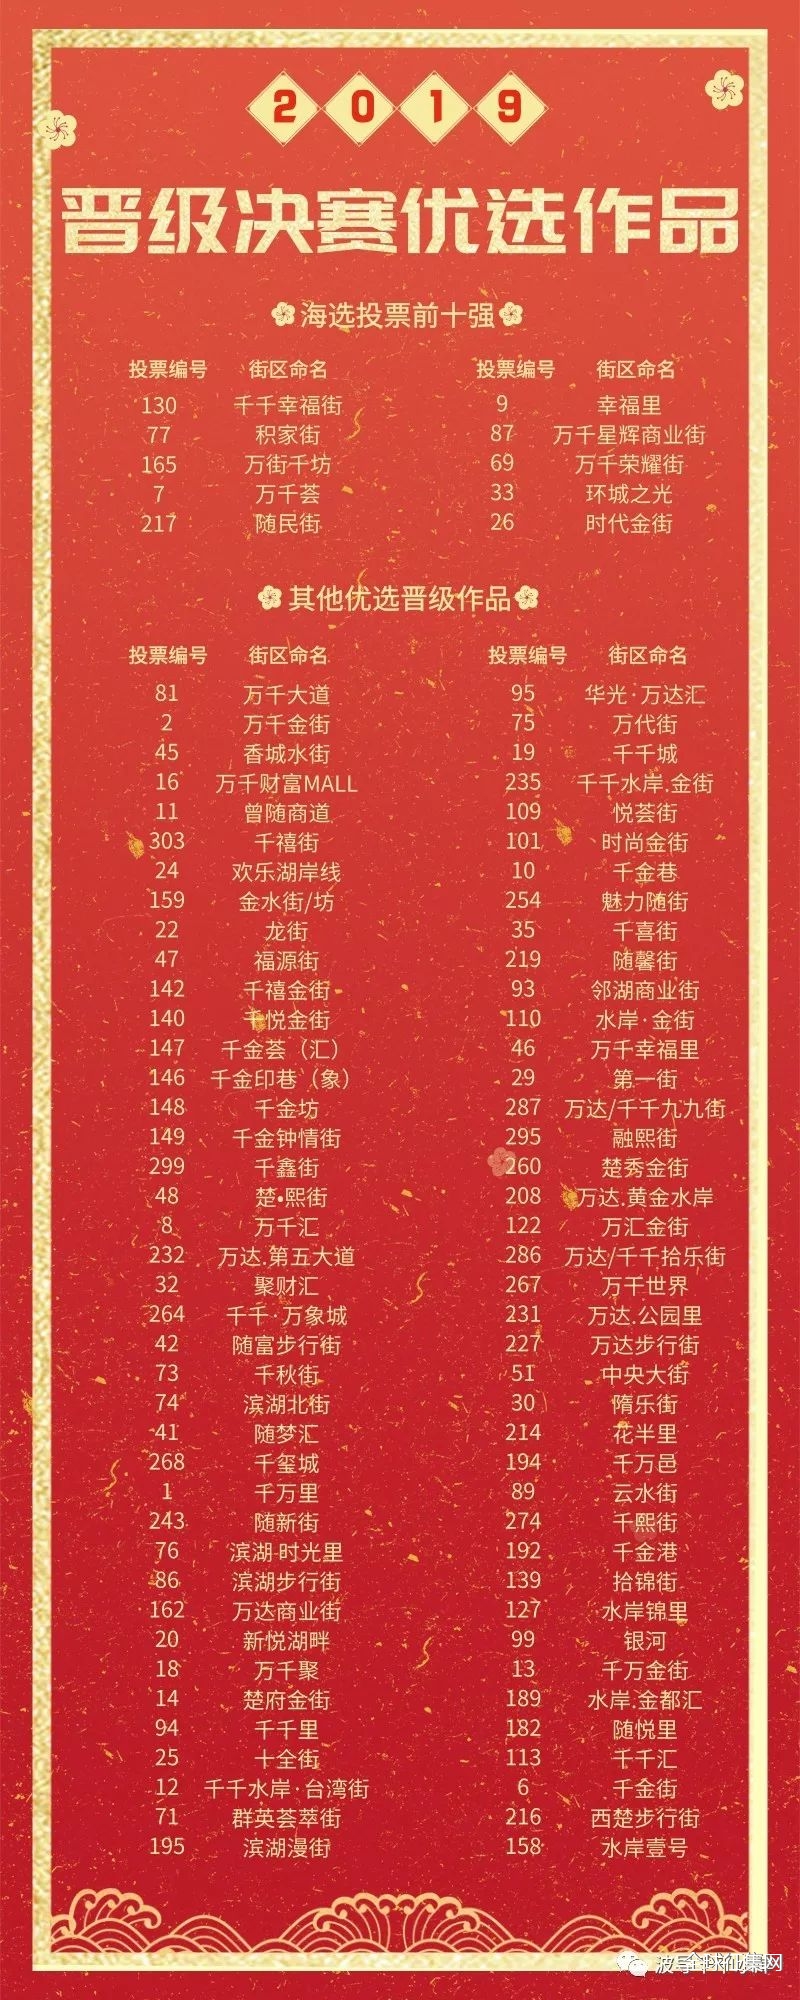 2019
晋级决赛优选作品
海选投票前十强
投票编号 街区命名 投票编号 街区命名
130 千千幸福街 9 幸福里
77 积家街 87 万千星辉商业街
165 万街千坊 69 万千荣耀街
7 万千荟 33 环城之光
217 随民街 26 时代金街
其他优选晋级作品
投票编号 街区命名 投票编号 街区命名
81 万千大道 95 华光·万达汇
2 万千金街 75 万代街
45 香城水街 19 千千城
16 万千财富MALL 235 千千水岸.金街
11 曾随商道 109 悦荟街
303 千禧街 101 时尚金街
24 欢乐湖岸线 10 千金巷
159 金水街/坊 254 魅力随街
22 龙街 35 千喜街
47 福源街 219 随馨街
142 千禧金街 93 邻湖商业街
140 千悦金街 110 水岸·金街
147 千金荟（汇） 46 万千幸福里
146 千金印巷（象） 29 第一街
148 千金坊 287 万达/千千九九街
149 千金钟情街 295 融熙街
299 千鑫街 260 楚秀金街
48 楚•熙街 208 万达.黄金水岸
8 万千汇 122 万汇金街
232 万达.第五大道 286 万达/千千拾乐街
32 聚财汇 267 万千世界
264 千千·万象城 231 万达.公园里
42 随富步行街 227 万达步行街
73 千秋街 51 中央大街
74 滨湖北街 30 隋乐街
41 随梦汇 214 花半里
268 千玺城 194 千万邑
1 千万里 89 云水街
243 随新街 274 千熙街
76 滨湖·时光里 192 千金港
86 滨湖步行街 139 拾锦街
162 万达商业街 127 水岸锦里
20 新悦湖畔 99 银河
18 万千聚 13 千万金街
14 楚府金街 189 水岸.金都汇
94 千千里 182 随悦里
25 十全街 113 千千汇
12 千千水岸·台湾街 6 千金街
71 群英荟萃街 216 西楚步行街
195 滨湖漫街 158 水岸壹号